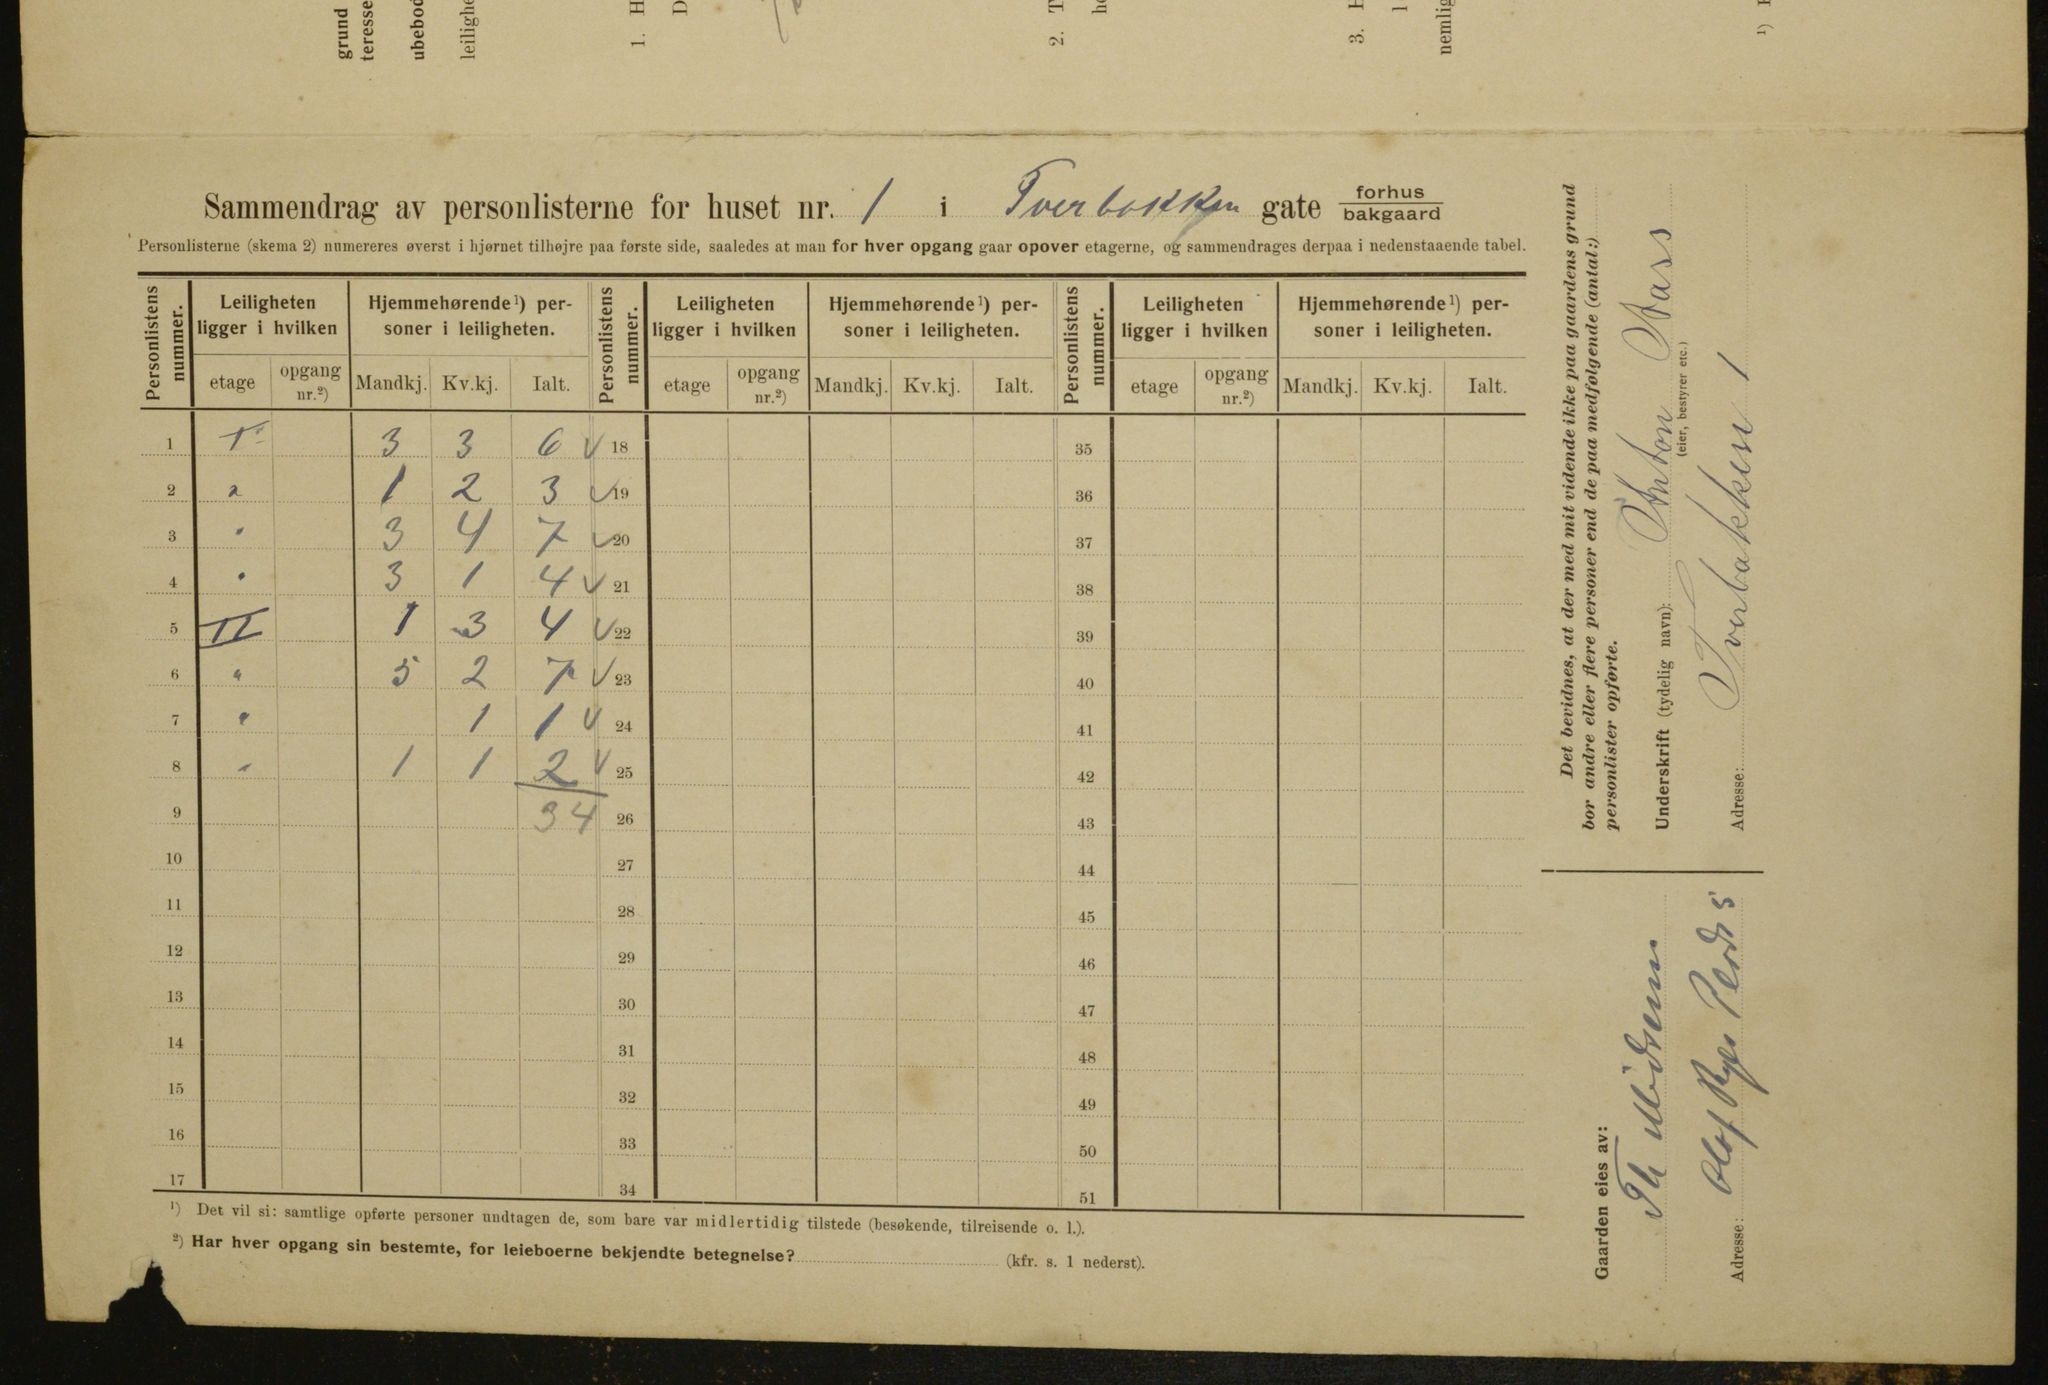 grund
teresse
ubebod
leilighe
1. H
D
2. T
he
3. H
l
nemlig
1) H
Sammendrag av personlisterne for huset nr. 1 i Tverbakken gate forhus
bakgaard
Personlisterne (skema 2) numereres øverst i hjørnet tilhøjre paa første side, saaledes at man for hver opgang gaar opover etagerne, og sammendrages derpaa i nedenstaaende tabel.
Personlistens nummer. Leiligheten ligger i hvilken Hjemmehørende 1) personer i leiligheten. Personlistens nummer. Leiligheten ligger i hvilken Hjemmehørende 1) personer i leiligheten. Personlistens nummer. Leiligheten ligger i hvilken Hjemmehørende 1) personer i leiligheten.
etage opgang nr.2) Mandkj. Kv.kj. Ialt. etage opgang nr.2) Mandkj. Kv.kj. Ialt. etage opgang nr.2) Mandkj. Kv.kj. Ialt.
1 1ᵗᵉ 3 3 6 ✓ 18 35
2 " 1 2 3 ✓ 19 36
3 " 3 4 7 ✓ 20 37
4 " 3 1 4 ✓ 21 38
5 II 1 3 4 ✓ 22 39
6 " 5 2 7 ✓ 23 40
7 " 1 1 ✓ 24 41
8 " 1 1 2 ✓ 25 42
9 34 26 43
10 27 44
11 28 45
12 29 46
13 30 47
14 31 48
15 32 49
16 33 50
17 34 51
1) Det vil si: samtlige opførte personer undtagen de, som bare var midlertidig tilstede (besøkende, tilreisende o. l.).
2) Har hver opgang sin bestemte, for leieboerne bekjendte betegnelse? (kfr. s. 1 nederst).
Det bevidnes, at der med mit vidende ikke paa gaardens grund
bor andre eller flere personer end de paa medfølgende (antal:)
personlister opførte.
Underskrift (tydelig navn): Anton Aass
(eier, bestyrer etc.)
Adresse: Tverbakken 1
Gaarden eies av:
Th
Adresse: Olaf Ryes Plads 5